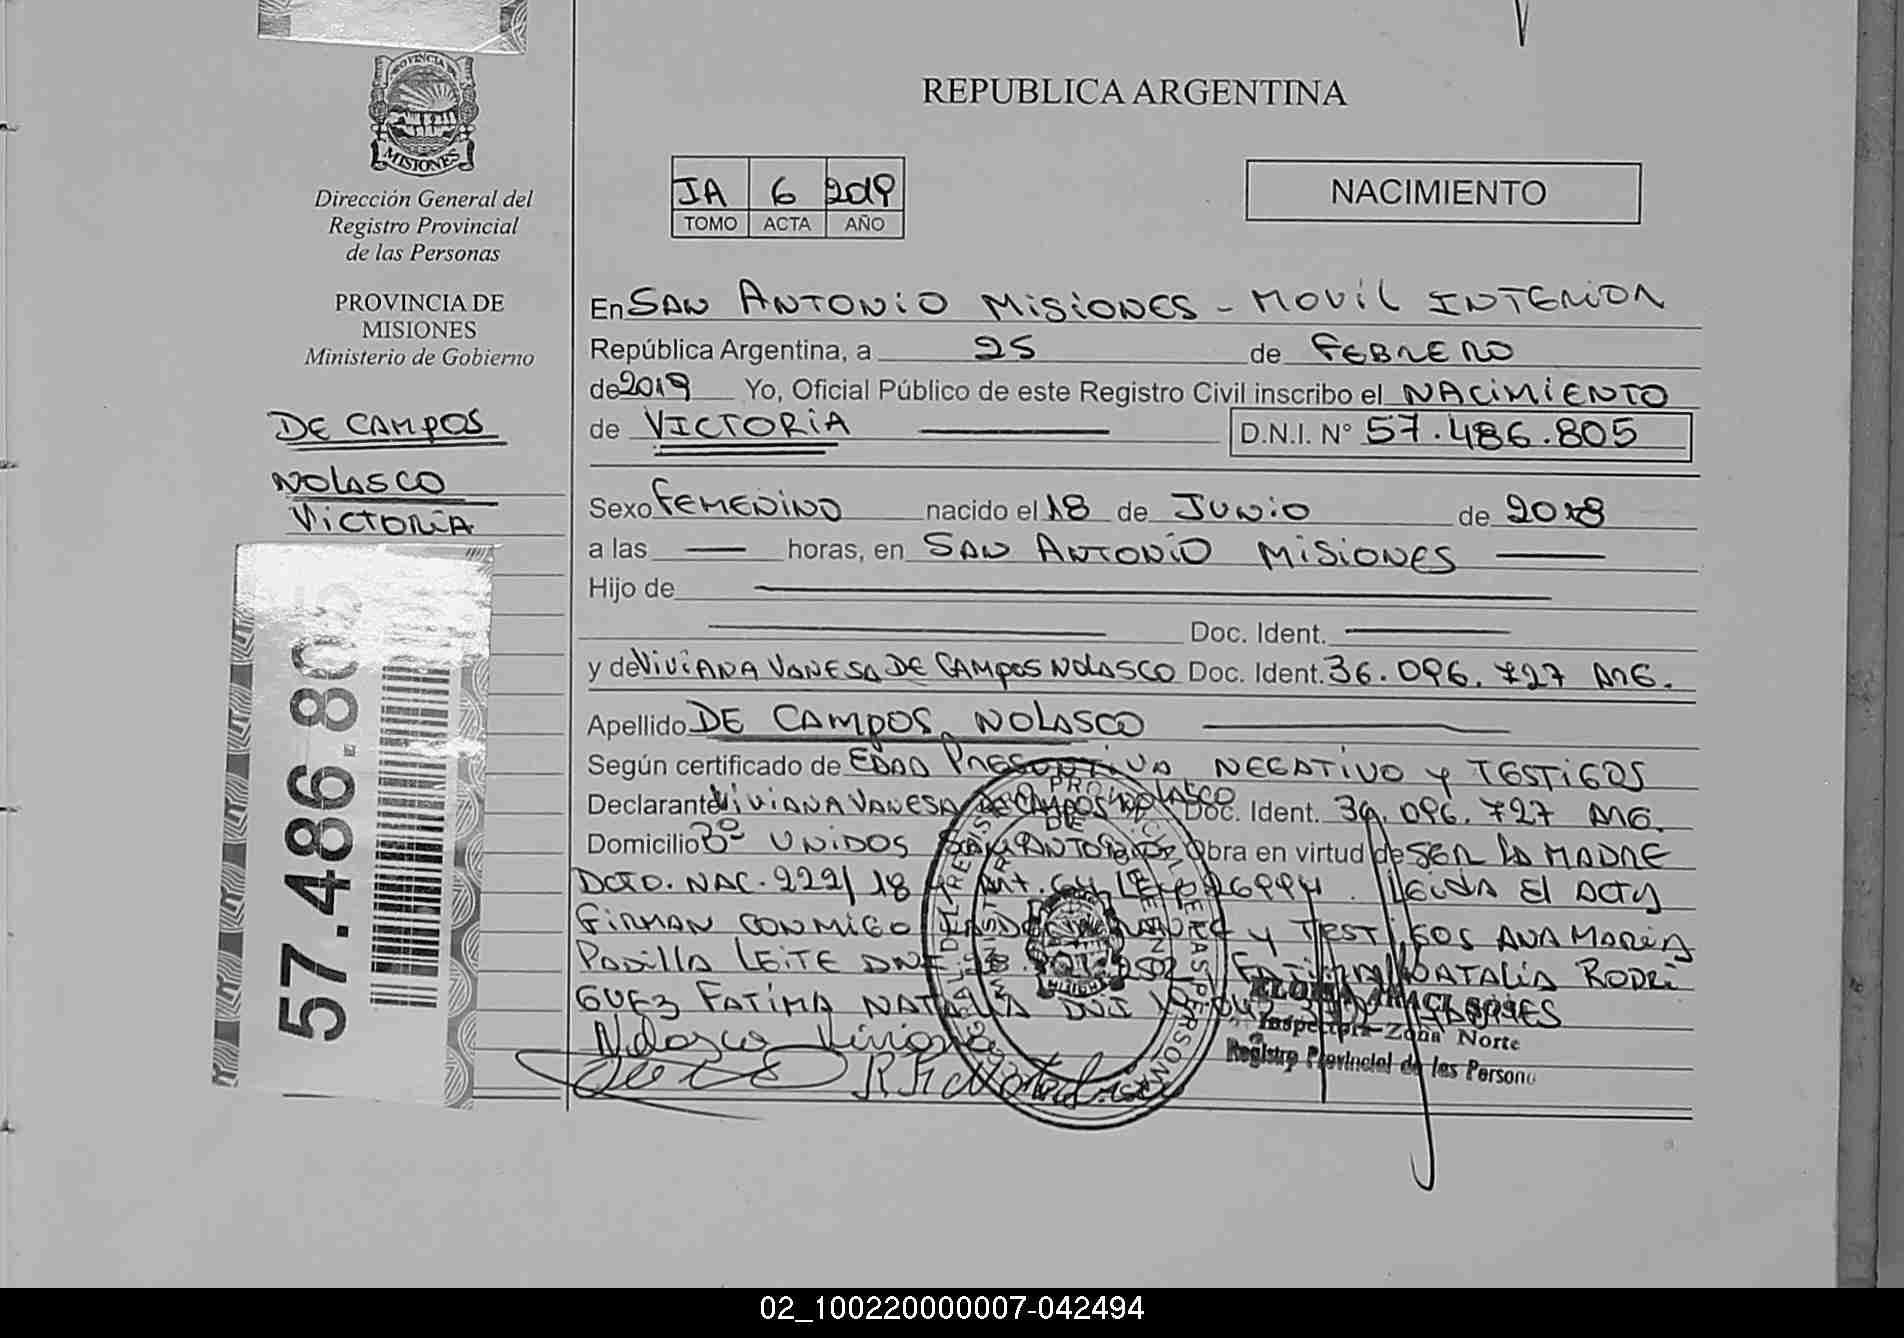 REPUBLICA ARGENTINA
PROVINCIA DE
MISIONES
Dirección General del
Registro Provincial
de las Personas
PROVINCIA DE
MISIONES
Ministerio de Gobierno
DE CAMPOS
NOLASCO
VICTORIA
57.486.805
JA 6 2019
TOMO ACTA AÑO
NACIMIENTO
En SAN ANTONIO MISIONES - MOVIL INTERIOR
República Argentina, a 25 de FEBRERO
de 2019 Yo, Oficial Público de este Registro Civil inscribo el NACIMIENTO
de VICTORIA D.N.I. N° 57.486.805
Sexo FEMENINO nacido el 18 de JUNIO de 2018
a las — horas, en SAN ANTONIO MISIONES
Hijo de
Doc. Ident.
y de VIVIANA VANESA DE CAMPOS NOLASCO Doc. Ident. 36.096.727 ARG.
Apellido DE CAMPOS NOLASCO
Según certificado de EDAD PRESUNTIVA NEGATIVO y TESTIGOS
Declarante VIVIANA VANESA DE CAMPOS NOLASCO Doc. Ident. 36.096.727 ARG.
Domicilio Bº UNIDOS SAN ANTONIO Obra en virtud de SER LA MADRE
DCTO. NAC. 222/18 Art. LEY 26994. LEIDA El ACTA
FIRMAN CONMIGO LA DECLARANTE y TESTIGOS ANA MARIA
PADILLA LEITE DNI FATIMA NATALIA RODRI
GUEZ FATIMA NATALIA DNI
Nolasco Viviana
Inspectora Zona Norte
Registro Provincial de las Persona
02_100220000007-042494